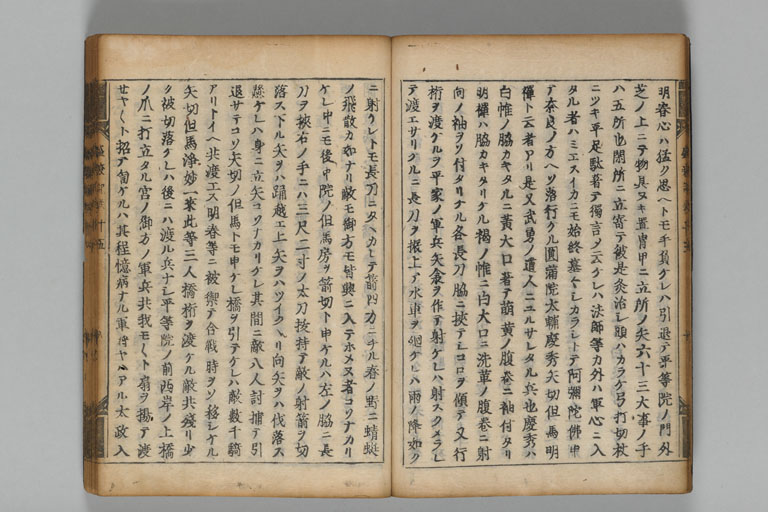 明春心ハ猛ク思ヘトモ手負ケレハ引退テ平等院ノ門外
芝ノ上ニテ物具ヌキ置冑甲ニ立所ノ矢六十三大事ノ手
ハ五所也閑所ニ立寄テ彼是灸治シ頭ハカラケ弓打切杖
ニツキ平足駄著テ獨言ヲ云ケレハ法師等カ外ハ軍心ニ入
タル者ハミエスイカニモ始終墓々シカラシトテ阿彌陀佛申
テ奈良ノ方ヘソ落行ケル圓蒲院太輔慶秀矢切但馬明
禪ト云者アリ是又武勇ノ道人ニユルサレタル兵也慶秀ハ
白帷ノ脇カキタルニ黄大口著テ萌黄ノ腹巻ニ袖付タリ
明禪ハ脇カキタリケル褐ノ帷ニ白大口ニ洗革ノ腹巻ニ射
向ノ袖ヲソ付タリケル各長刀脇ニ挾テシコロヲ傾テ又行
桁ヲ渡ケルヲ平家ノ軍兵矢衾ヲ作テ射ケレハ射スクメラレ
テ渡エサリケルニ長刀ヲ振上テ水車ヲ廻ケレハ雨ノ降如ク
ニ射ケレトモ長刀ニタヽカレテ箭四方ニチル春ノ野ニ蜻蜓
ノ飛散カ如ナリ敵モ御方モ皆興ニ入テホメヌ者コソナカリ
ケレ中ニモ後中院ノ但馬房ヲ箭切ト申ケルハ左ノ脇ニ長
刀ヲ挾右ノ手ニハ三尺二寸ノ太刀抜持テ敵ノ射箭ヲ切
落ス下ル矢ヲハ踊越エ上矢ヲハツイクヽリ向矢ヲハ伐落ス
懸ケレハ身ニ立矢コソナカリケレ其間ニ敵八人討捕テ引
退サテコソ矢切ノ但馬トモ申ケレ橋ヲ引テケレハ敵數千騎
アリトイヘ共渡エス明春等ニ被禦テ合戰時ヲソ移シケル
矢切但馬淨妙一來此等三人橋桁ヲ渡ケル敵共殘リ少
ク被切落ケレハ後ニハ渡ル兵ナシ平等院ノ前西岸ノ上橋
ノ爪ニ打立タル宮ノ御方ノ軍兵共我モ〳〵ト扇ヲ揚テ渡
セヤ〳〵ト招テ匐ケルハ其程憶病ナル軍將ヤハアル太政入